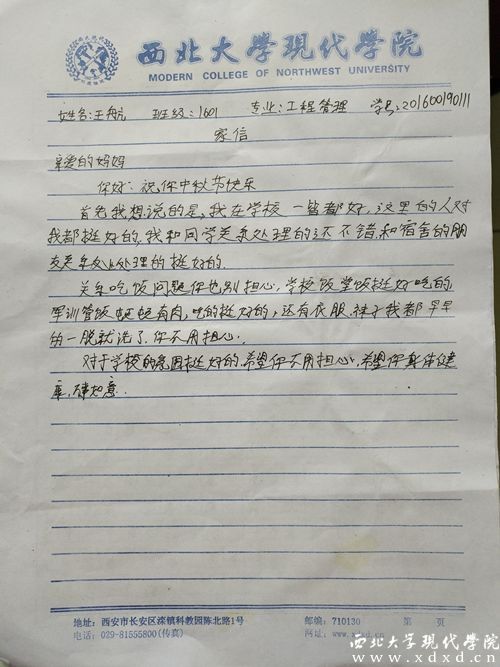 西北大学现代学院
MODERN COLLEGE OF NORTHWEST UNIVERSITY
姓名:王航 班级:1601 专业:工程管理 学号:201600190111
家信
亲爱的妈妈
你好:祝你中秋节快乐
首先我想说的是,我在学校一皆都好,这里的人对
我都挺好的,我和同学关系处理的还不错,和宿舍的朋
友关系处理的挺好的.
关系吃饭问题你也别担心,学校饭堂饭挺好吃的,
军训管饭顿顿有肉,吃的挺好的,还有衣服,袜子我都早早
的一脱就洗了,你不用担心.
对于学校的挺好的,希望你不用担心,希望你身体健
康,事如意.
地址:西安市长安区滦镇科教园陈北路1号 邮编:710130 第 页
电话:029-81555800(传真) 网址:www.xdxd.cn
西北大学现代学院
www.xdxd.cn